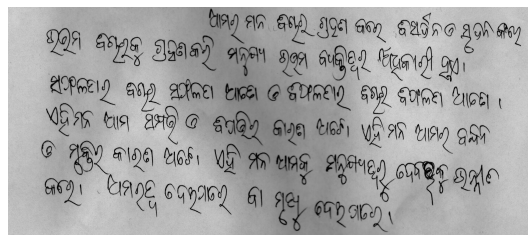 ଆମର ମନ ବିଚାର ଗ୍ରହଣ କରେ ବିସର୍ଜନ ଓ ସୃଜନ କରେ
ଉତ୍ତମ ବିଚାରକୁ ଗ୍ରହଣ କରି ମନୁଷ୍ୟ ଉତ୍ତମ ବ୍ୟକ୍ତିତ୍ୱର ଅଧିକାରୀ ହୁଏ।
ସଫଳତାର ବିଚାର ସଫଳତା ଆଣେ ଓ ବିଫଳତାର ବିଚାର ବିଫଳତା ଆଣେ।
ଏହି ମନ ଆମ ସମ୍ପତ୍ତି ଓ ବିପତ୍ତିର କାରଣ ଅଟେ। ଏହି ମନ ଆମର ବନ୍ଧନ
ଓ ମୁକ୍ତିର କାରଣ ଅଟେ। ଏହି ମନ ଆମକୁ ମନୁଷ୍ୟତ୍ୱରୁ ଦେବତ୍ୱକୁ ଉନ୍ନୀତ
କରେ। ଅମରତ୍ୱ ଦେଇପାରେ ବା ମୃତ୍ୟୁ ଦେଇପାରେ।